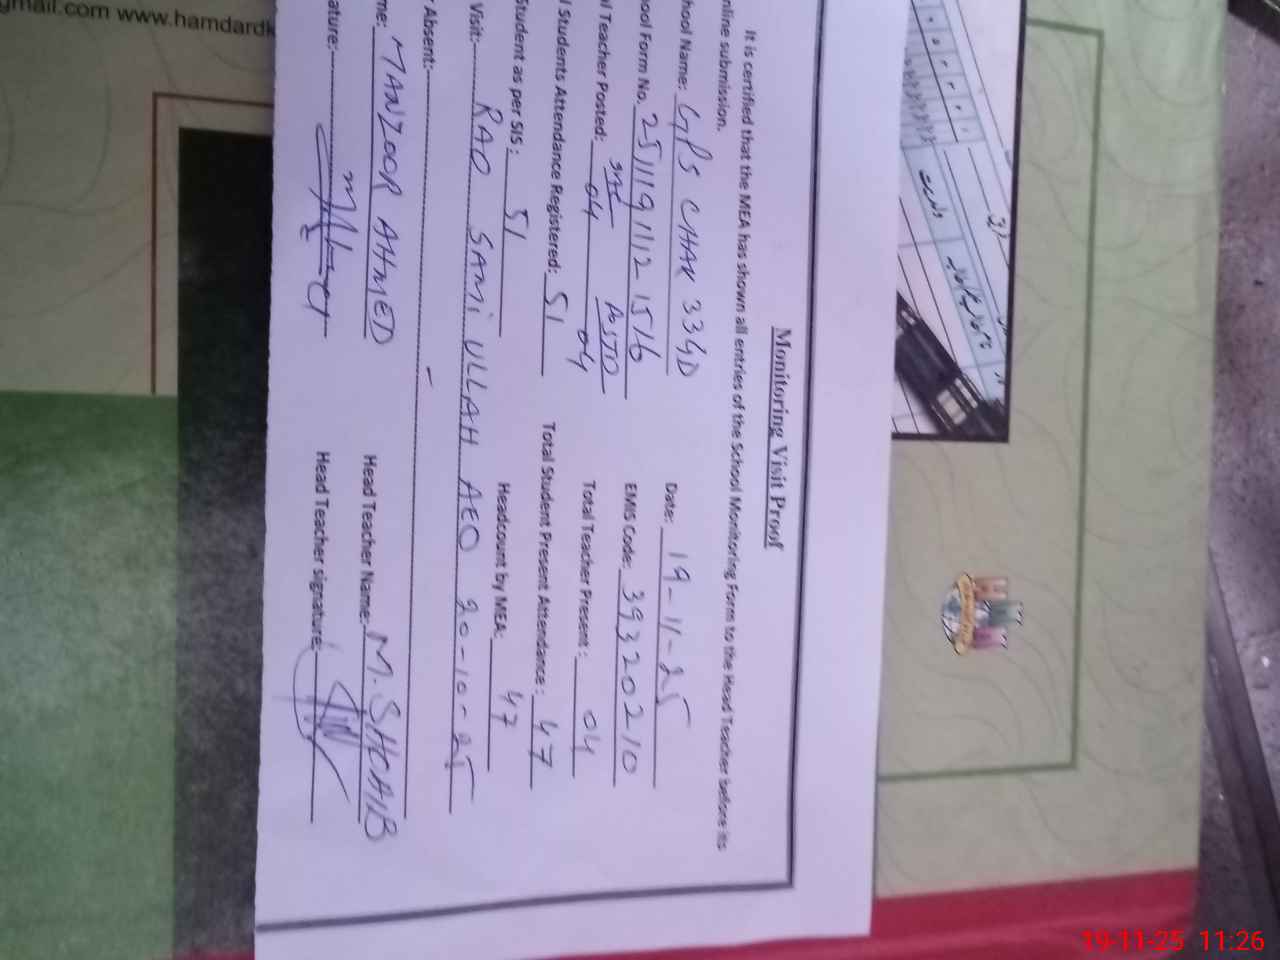 Monitoring Visit Proof
It is certified that the MEA has shown all entries of the School Monitoring Form to the Head Teacher before its
nline submission.
hool Name: GPS CHAK 334D Date: 19-11-25
ool Form No. 2511191112 1516 EMIS Code: 39320210
l Teacher Posted: SNE 04 POSTED 04 Total Teacher Present: 04
l Students Attendance Registered: 51 Total Student Present Attendance: 47
Student as per SIS: 51 Headcount by MEA: 47
Visit:- RAO SAMi ULLAH AEO 20-10-25
r Absent:- -
me: MANZOOR AHMED Head Teacher Name: M. SHOAIB
ature: Head Teacher signature:
gmail.com www.hamdardk
ولدیت
19-11-25 11:26